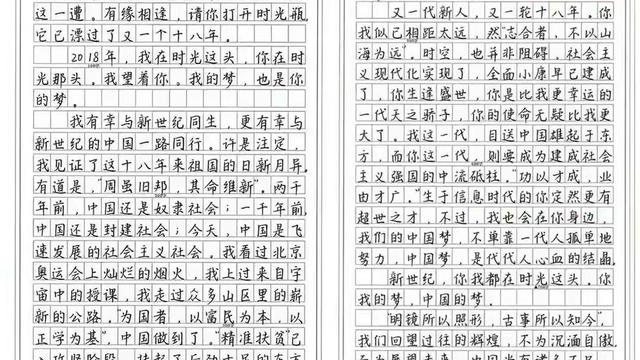 这一遭。有缘相逢，请你打开时光瓶，
它已漂过了又一个十八年。
2018年，我在时光这头，你在时
光那头。我望着你。我的梦，也是你
的梦。
我有幸与新世纪同生，更有幸与
新世纪的中国一路同行。许是注定，
我见证了这十八年来祖国的日新月异。
有道是，“周虽旧邦，其命维新”。两千
年前，中国还是奴隶社会；一千年前，
中国还是封建社会；今天，中国是飞
速发展的社会主义社会。我看过北京
奥运会上灿烂的烟火，我上过来自宇
宙中的授课，我走过众多山区里的崭
新的公路。“为国者，以富民为本，以
正学为基”，中国做到了。“精准扶贫”已
又一代新人，又一轮十八年。你
我似已相距太远，然“志合者，不以山
海为远”。时空，也并非阻碍，社会主
义现代化实现了，全面小康早已建成
了，你生逢盛世，你是比我更幸运的
一代天之骄子，你的使命无疑比我更
大了。我这一代，目送中国雄起于东
方，而你这一代，则要成为建成社会
主义强国的中流砥柱。“功以才成，业
由才广。”生于信息时代的你定然更有
超世之才，不过，我也会在你身边，
我们的中国梦，不单靠一代人孤单地
努力，中国梦，是代代人心血的结晶。
新世纪，你我都在时光这头。你
我的梦，中国的梦。
“明镜所以照形，古事所以知今”，
我们回望过往的辉煌，不为沉湎自傲，